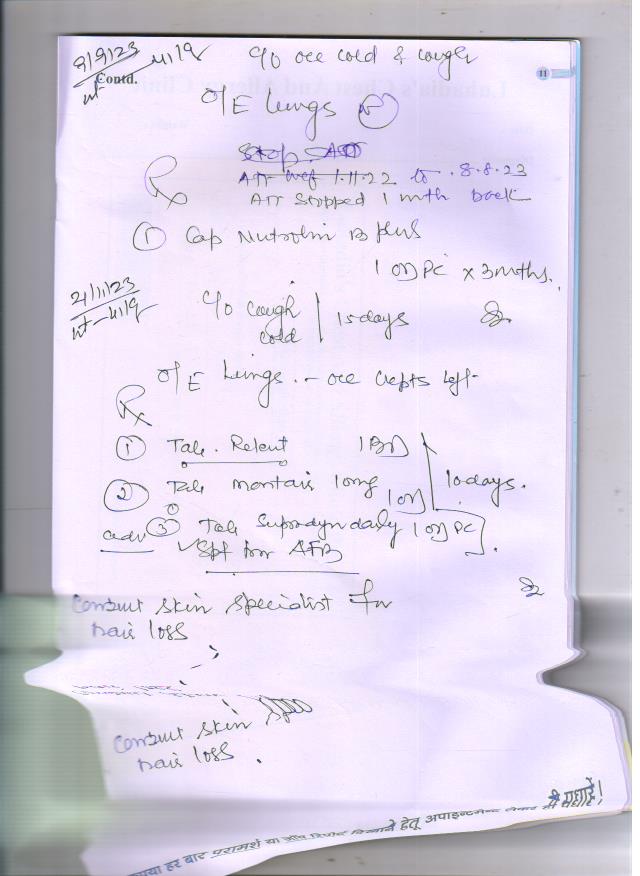 9/9/23 41/9 c/o occ cold & cough
Contd.
wt
11
O/E Lungs
Stop ATT
Rx ATT wef 1.11.22 to 8.8.23
ATT stopped 1 mth back
① Cap Nutrolin B plus
1 OD PC x 3 mths.
21/11/23 c/o cough 15 days
wt - 41/9 cold
O/E Lungs. - occ crepts left
Rx
① Tab. Relent 1 BD
② Tab montair 10mg 1 OD 10 days.
③ Tab Supradyn daily 1 OD PC
adv ✓ Spt for AFB
Consult Skin Specialist for
hair loss
Consult Skin Spec
hair loss.
हर बार परामर्श या जाँच रिपोर्ट दिखाने हेतू अपाइन्टमेन्ट लेकर ही पधारें!